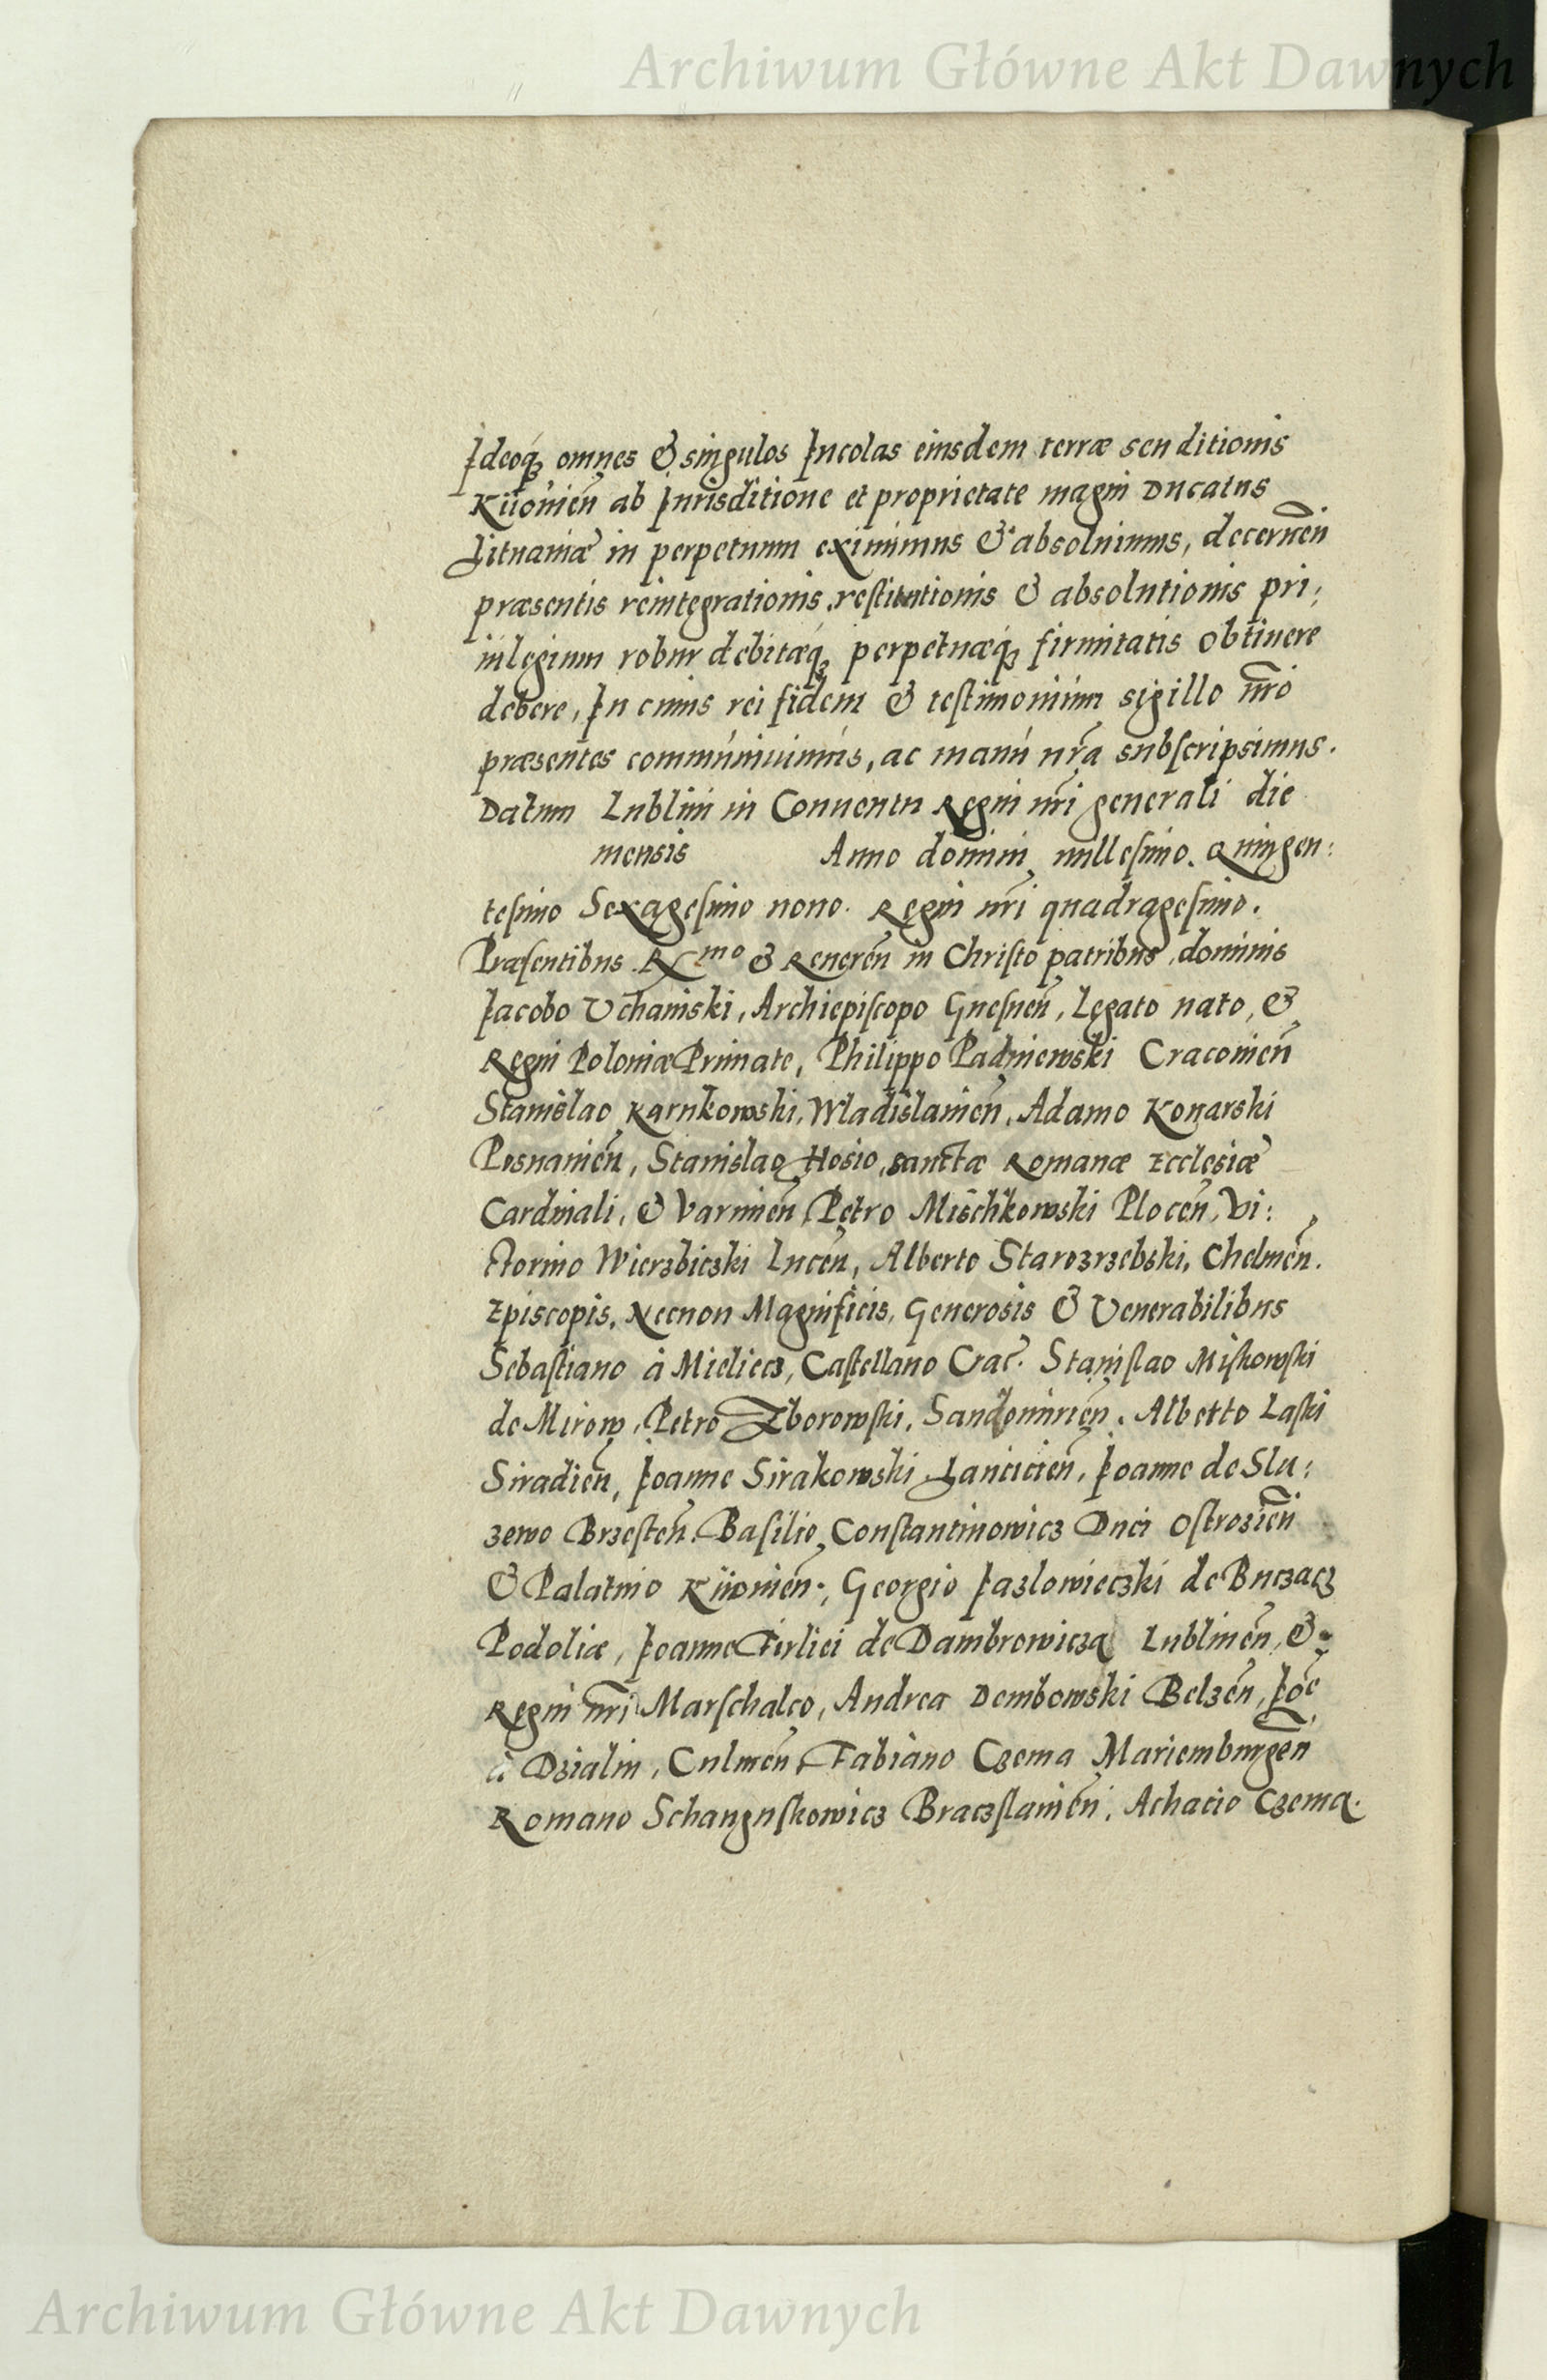 Archiwum Główne Akt Dawnych
Ideoq₃ omnes & singulos Incolas eiusdem terræ seu ditionis
Kiiouien̄ ab Iurisditione et proprietate magni Ducatus
Lituaniæ in perpetuum eximimus & absoluimus, decernen̄
præsentis reintegrationis, restitutionis & absolutionis pri:
uilegium robur debitæq₃ perpetuæq₃ firmitatis obtinere
debere, In cuius rei fidem & testimonium sigillo nr̄o
præsentes communiuimus, ac manu nr̄a subscripsimus.
Datum Lublini in Conuentu Regni nr̄i generali die
mensis Anno domini millesimo. Quingen:
tesimo Sexagesimo nono. Regni nr̄i quadragesimo.
Præsentibus. R^mo & Reueren̄ in Christo patribus, dominis
Iacobo Vchański, Archiepiscopo Gnesnen̄, Legato nato, &
Regni Poloniæ Primate, Philippo Padniewski Cracouien̄
Stanislao Karnkowski, Wladislauien̄, Adamo Konarski
Posnanien̄, Stanislao Hosio, sanctæ Romanæ Ecclesiæ
Cardinali, & Varmien̄, Petro Mischkowski Plocen̄, Vi:
ctorino Wierzbiczki Lucen̄, Alberto Starozrzebski, Chelmen̄.
Episcopis, Necnon Magnificis, Generosis & Venerabilibus
Sebastiano à Mieliecz, Castellano Crac̄. Stanislao Miskowski
de Mirow, Petro Zborowski, Sandomirien̄. Alberto Laski
Siradien̄, Ioanne Sirakowski Lancicien̄, Ioanne de Slu:
zewo Brzesten̄. Basilio Constantinowicz Duci Ostrozien̄
& Palatino Kiiouien̄., Georgio Iazlowieczki de Buczacz
Podoliæ, Ioanne Firliei de Dambrowicza Lublinen̄, &
Regni nr̄i Marschalco, Andrea Dembowski Belzen̄, Ioē
à Dzialin, Culmen̄, Fabiano Czema Mariemburgen̄
Romano Schangnskowicz Braczslauien̄, Achacio Czema.
Archiwum Główne Akt Dawnych